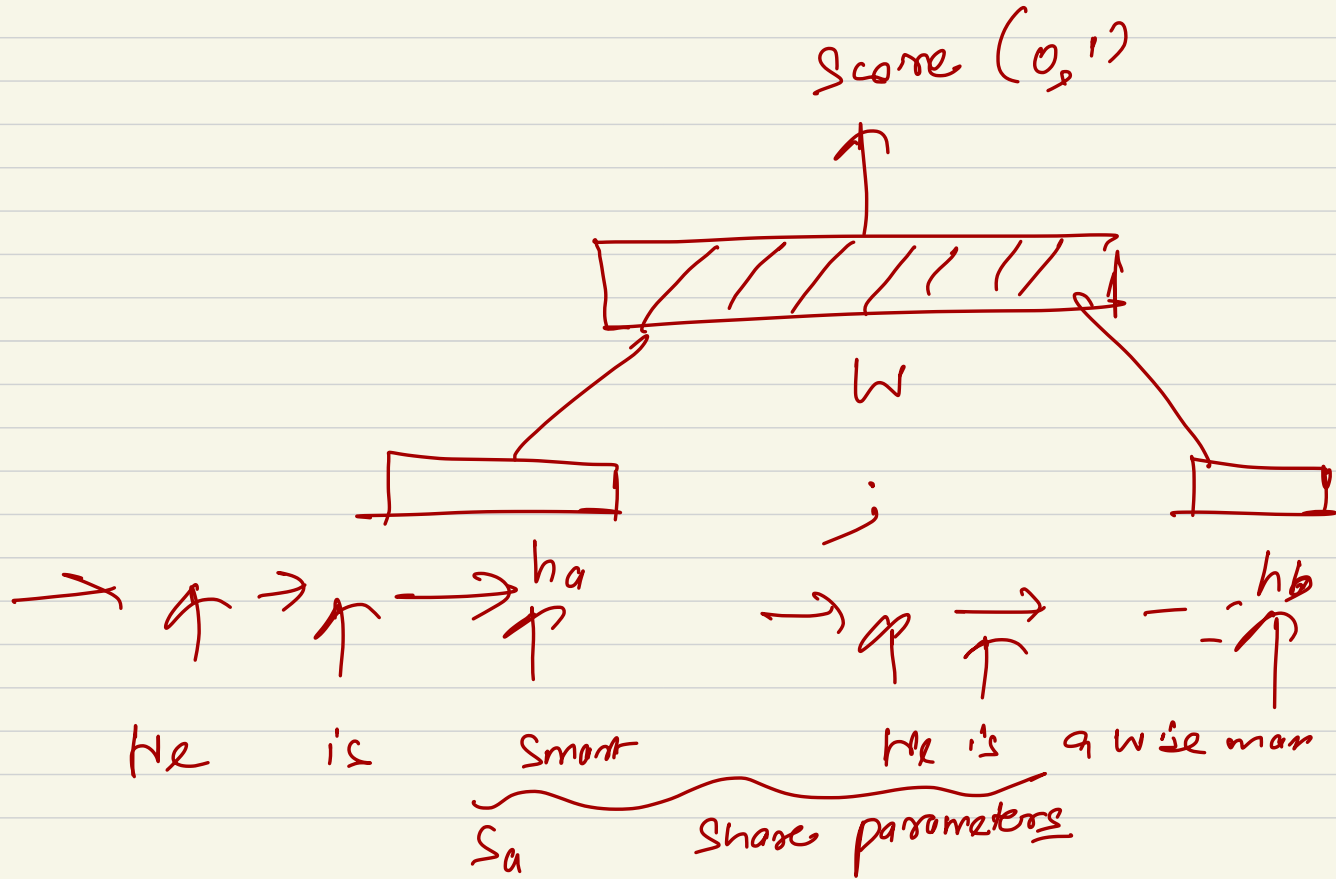 Score (0,1)
W
;
ha
hb
He is Smart
He is a wise man
Sa
Share parameters